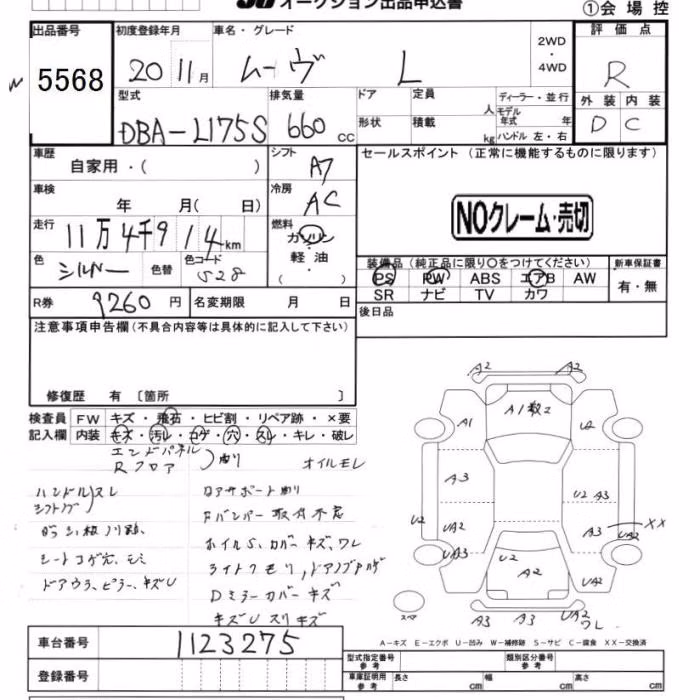 オークション出品申込書
①会場控
出品番号 初度登録年月 車名・グレード 2WD・4WD 評価点
5568 20 11月 ムーヴ L R
型式 排気量 ドア 定員 人 ディーラー・並行 外装 内装
DBA-L175S 660cc 形状 積載 kg モデル年式 年 ハンドル 左・右 D C
車歴 自家用・( ) シフト A7 セールスポイント (正常に機能するものに限ります)
車検 年 月( 日) 冷房 AC
NOクレーム・売切
走行 11万4千914km 燃料 ガソリン・軽油・( )
色 シルバー 色替 色コード S28
装備品(純正品に限り○をつけてください) 新車保証書
PS PW ABS エアB AW 有・無
SR ナビ TV カワ
R券 9260円 名変期限 月 日 後日品
注意事項申告欄(不具合内容等は具体的に記入して下さい)
修復歴 有 〔箇所 〕
検査員 FW キズ・飛石・ヒビ割・リペア跡・×要
記入欄 内装 キズ・汚レ・コゲ・穴・スレ・キレ・破レ
エンドパネル
Rフロア 曲り オイルモレ
ハンドル スレ
シフトノブ
コアサポート曲り
Fバンパー取付不良
ホイルS、カバーキズ、ワレ
シートコゲ穴、
ライトクモリ、ドアノブ
ドアウラ、ピラー、キズU
Dミラーカバーキズ
キズUスリキズ
A2 A2
A1 A1数2 U2
A3 U2 A3
U2 UA2 A3 XX
UA3 U2 UA2
A2 UA2
スペ A3 A3 UA2 ワレ
A-キズ E-エクボ U-凹み W-補修跡 S-サビ C-腐食 XX-交換済
車台番号 1123275
登録番号
型式指定番号 参考 類別区分番号 参考
車庫証明用 参考 長さ cm 幅 cm 高さ cm